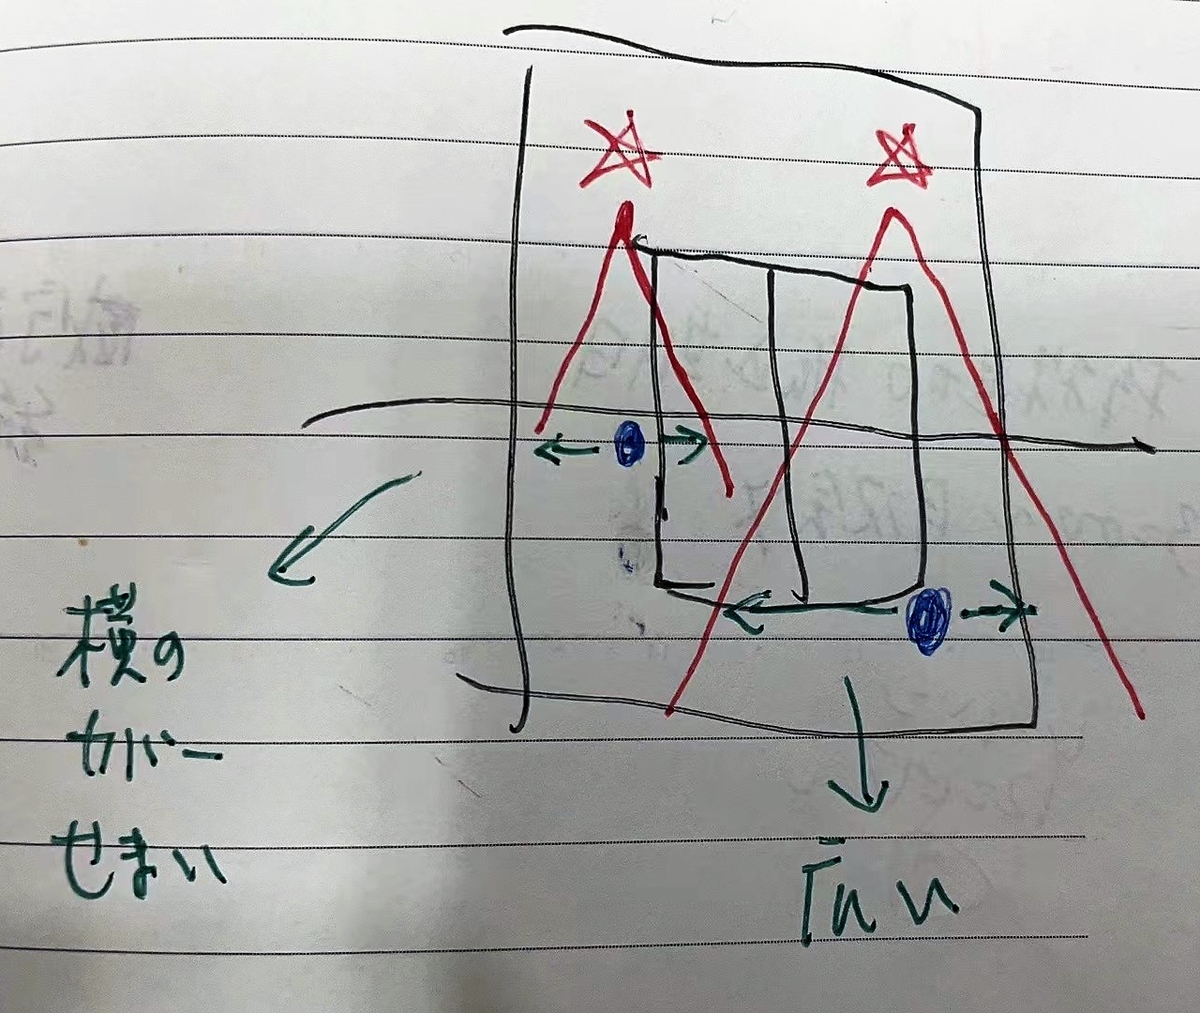 横の
カバー
せまい
広い